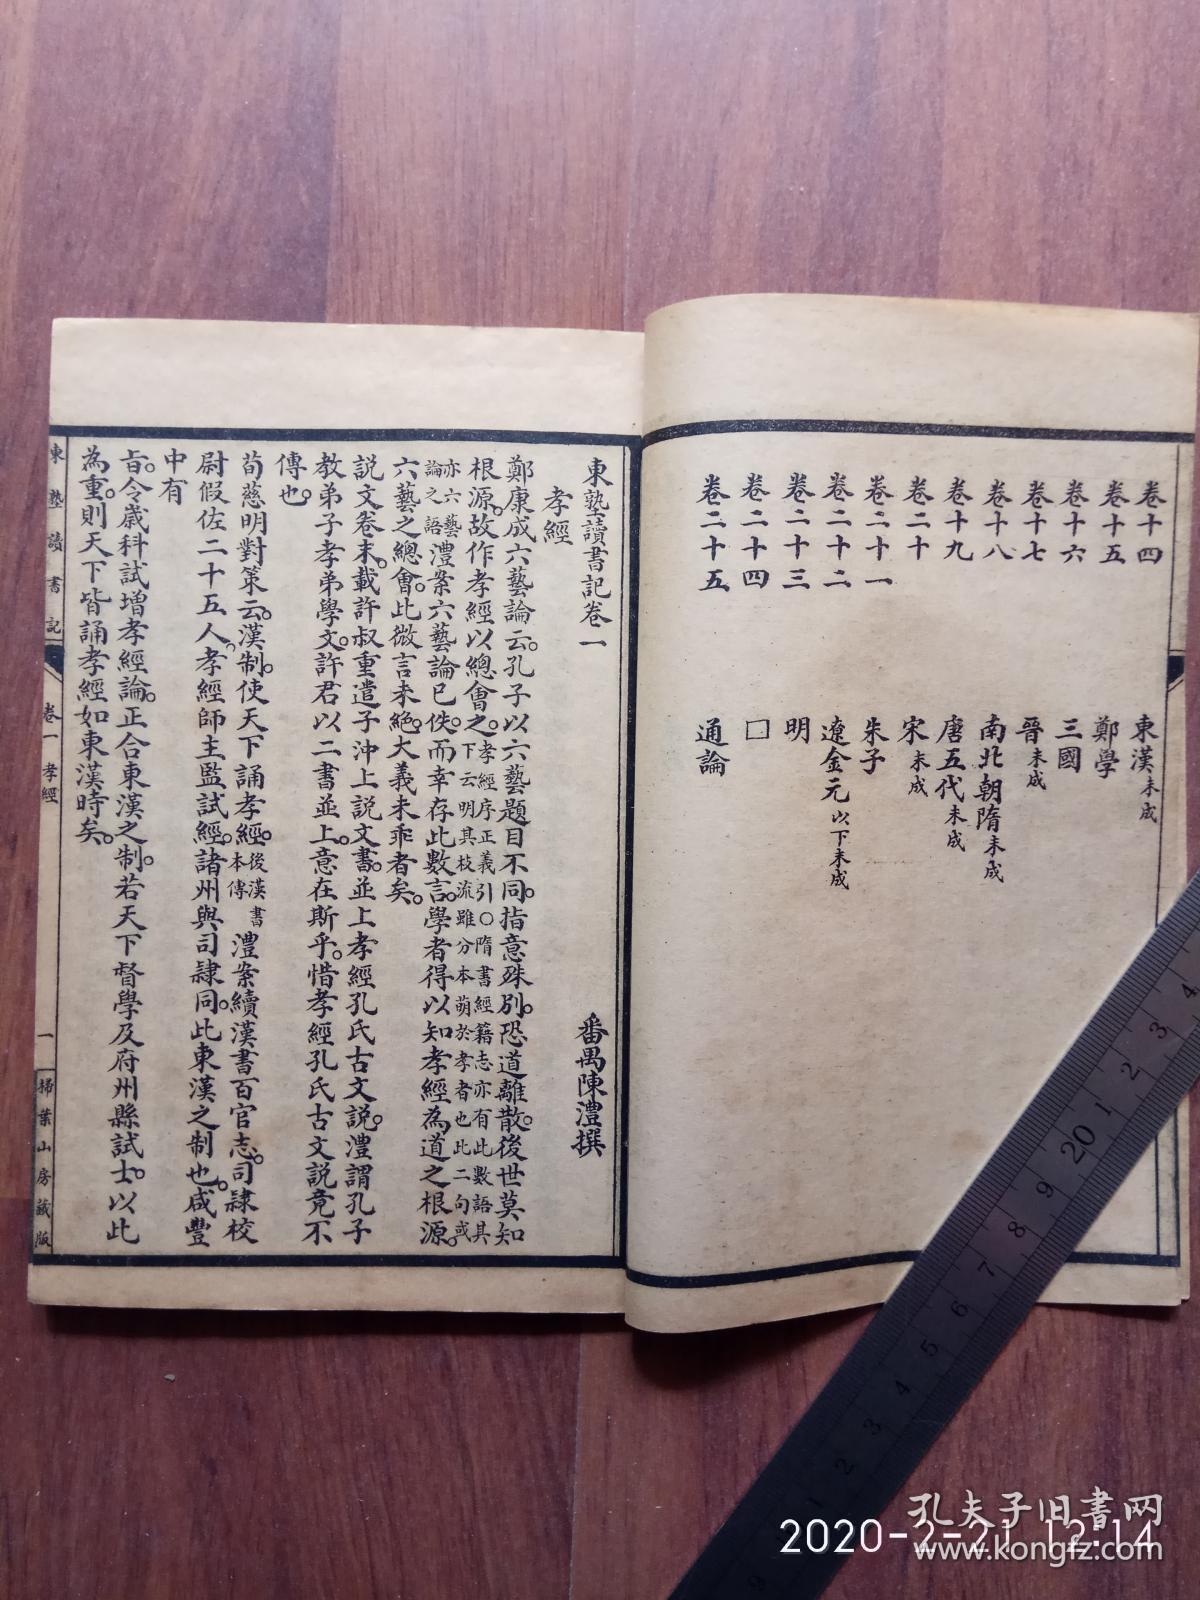 卷十四 東漢未成
卷十五 鄭學
卷十六 三國
卷十七 晉未成
卷十八 南北朝隋未成
卷十九 唐五代未成
卷二十 宋未成
卷二十一 朱子
卷二十二 遼金元以下未成
卷二十三 明
卷二十四 □
卷二十五 通論
東塾讀書記卷一
番禺陳澧撰
孝經
鄭康成六藝論云。孔子以六藝題目不同。指意殊別。恐道離散。後世莫知
根源。故作孝經以總會之。孝經序正義引○隋書經籍志亦有此數語其下云明其枝流雖分本萌於孝者也此二句或
亦六藝論之語澧案六藝論已佚。而幸存此數言。學者得以知孝經為道之根源。
六藝之總會。此微言未絕。大義未乖者矣。
說文卷末。載許叔重遣子沖上說文書。並上孝經孔氏古文說。澧謂孔子
教弟子孝弟學文。許君以二書並上。意在斯乎。惜孝經孔氏古文說竟不
傳也。
荀慈明對策云。漢制。使天下誦孝經。後漢書本傳澧案續漢書百官志。司隸校
尉假佐二十五人。孝經師主監試經。諸州與司隸同。此東漢之制也。咸豐
中有
旨。令歲科試增孝經論。正合東漢之制。若天下督學及府州縣試士。以此
為重。則天下皆誦孝經如東漢時矣。
東塾讀書記
卷一 孝經
一
掃葉山房藏版
4
3
2
1
20
9
8
7
6
5
4
3
2
1
9
孔夫子旧書网
www.kongfz.com
2020-2-21 12:14